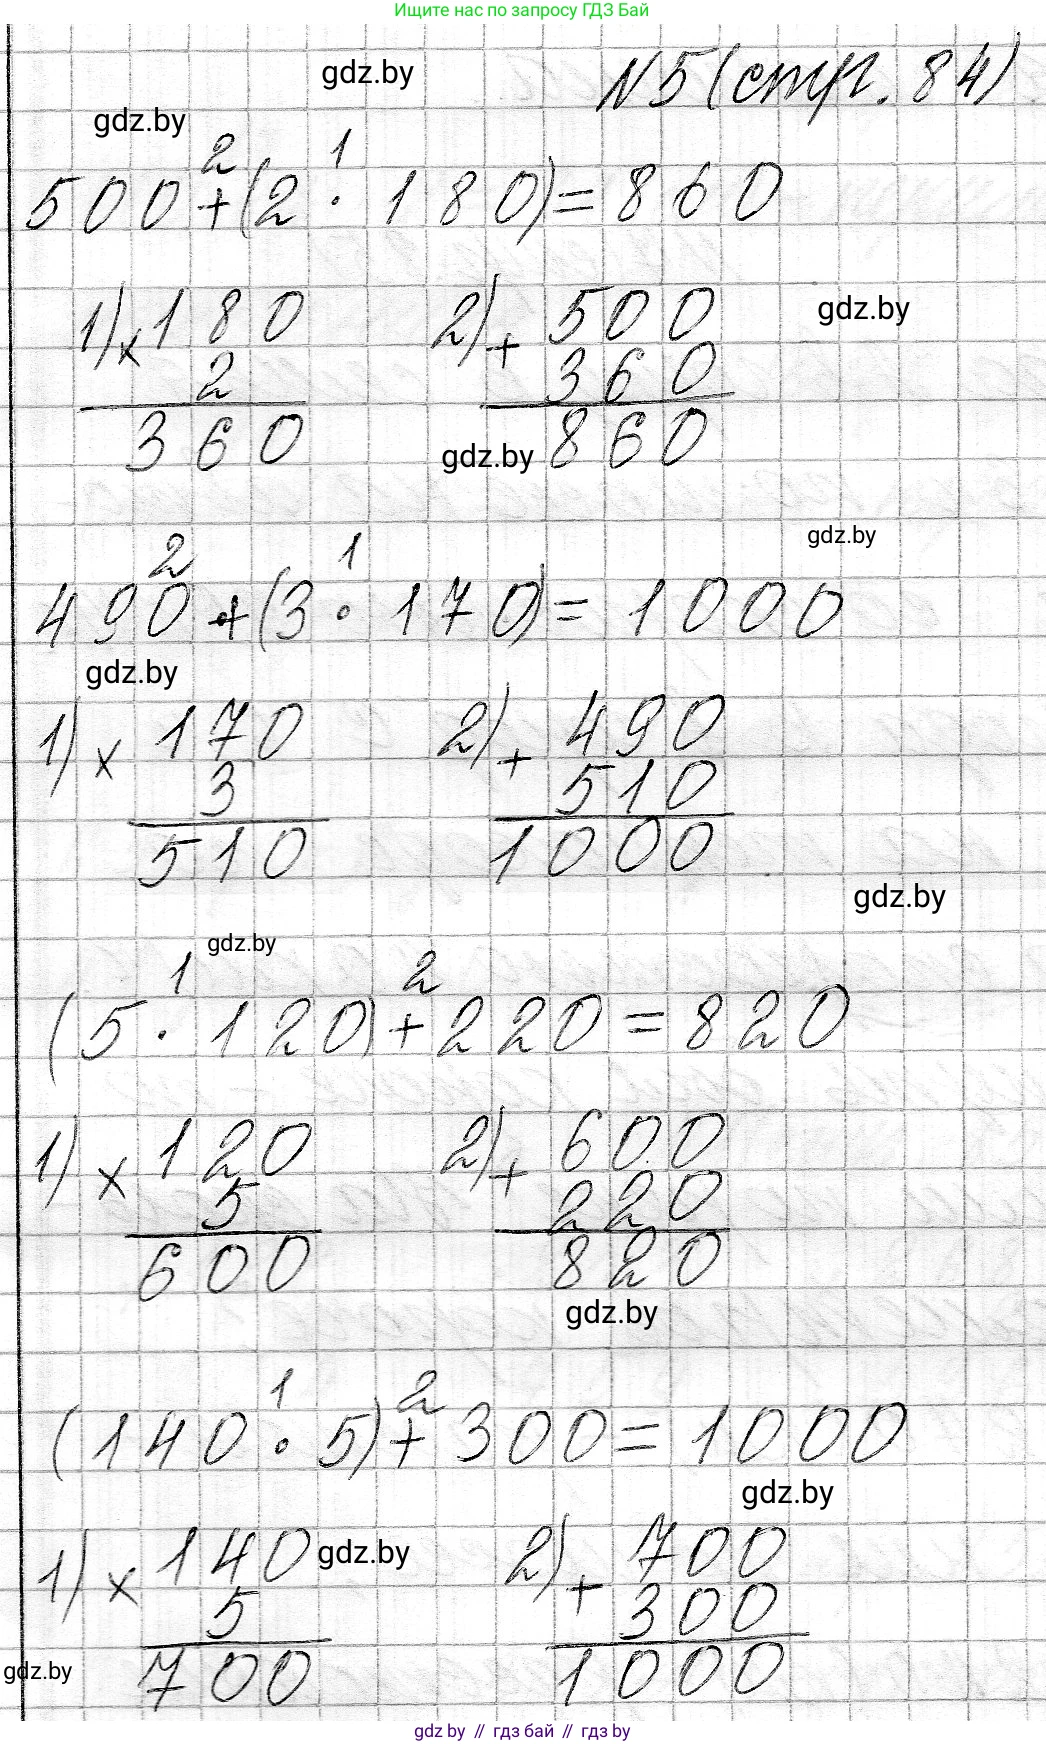 Ищите нас по запросу ГДЗ Бай
gdz.by
N5 (стр. 84)
gdz.by
2 1
500+(2·180)=860
1) × 180 2) + 500
gdz.by
2 360
360 860
gdz.by
gdz.by
2 1
490+(3·170)=1000
gdz.by
1) × 170 2) + 490
3 510
510 1000
gdz.by
gdz.by
1 2
(5·120)+220=820
1) × 120 2) + 600
5 220
600 820
gdz.by
1 2
(140·5)+300=1000
gdz.by
1) × 140 2) + 700
gdz.by
5 300
700 1000
gdz.by
gdz by // гдз бай // гдз by